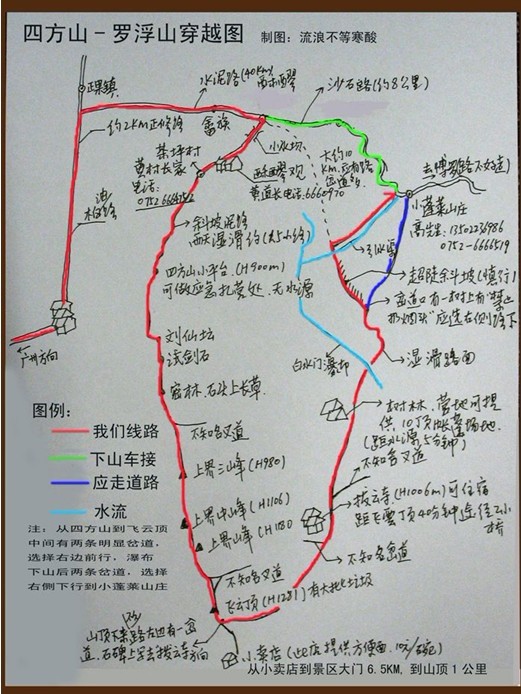 四方山-罗浮山穿越图
制图：流浪不等寒酸
水泥路(40km)
沙石路(约8公里)
约2km正修路
畲族
茶坪村
黄村长家
电话：
小水坝
大约10
黄道长电话：6668970
去博罗路不好走)
小蓬莱山庄
高先生：13502236986
0752-6666519
斜坡泥路
雨天湿滑约(1.5小时)
引水渠
四方山小平台.(H900m)
可做应急扎营处.无水源
超陡余斗坡(慎行)
刘仙坛
流剑石
白水门瀑布
湿滑路面
广州方向
密林.石头上长草.
树林.营地可提
(距水源5分钟)
图例：
我们线路
下山车接
应走道路
水流
不知名叉道
不知名叉道
上界三峰(H980)
上界中峰(H1106)
上界山峰(H1180
拨云寺(H1006m)可住宿
距飞云顶40分钟途径2小
不知名岔道
注：从四方山到飞云顶
中间有两条明显岔道，
选择右边前行，瀑布
下山后两条岔道，选择
右侧下行到小蓬莱山庄
不知名叉道
飞云顶(H1281)有大批垃圾
山顶下来路左边有一岔
道.石碑上写去拨云寺方向
小卖店(此店提供方便面.10元/碗)
从小卖店到景区大门 6.5KM, 到山顶 1 公里